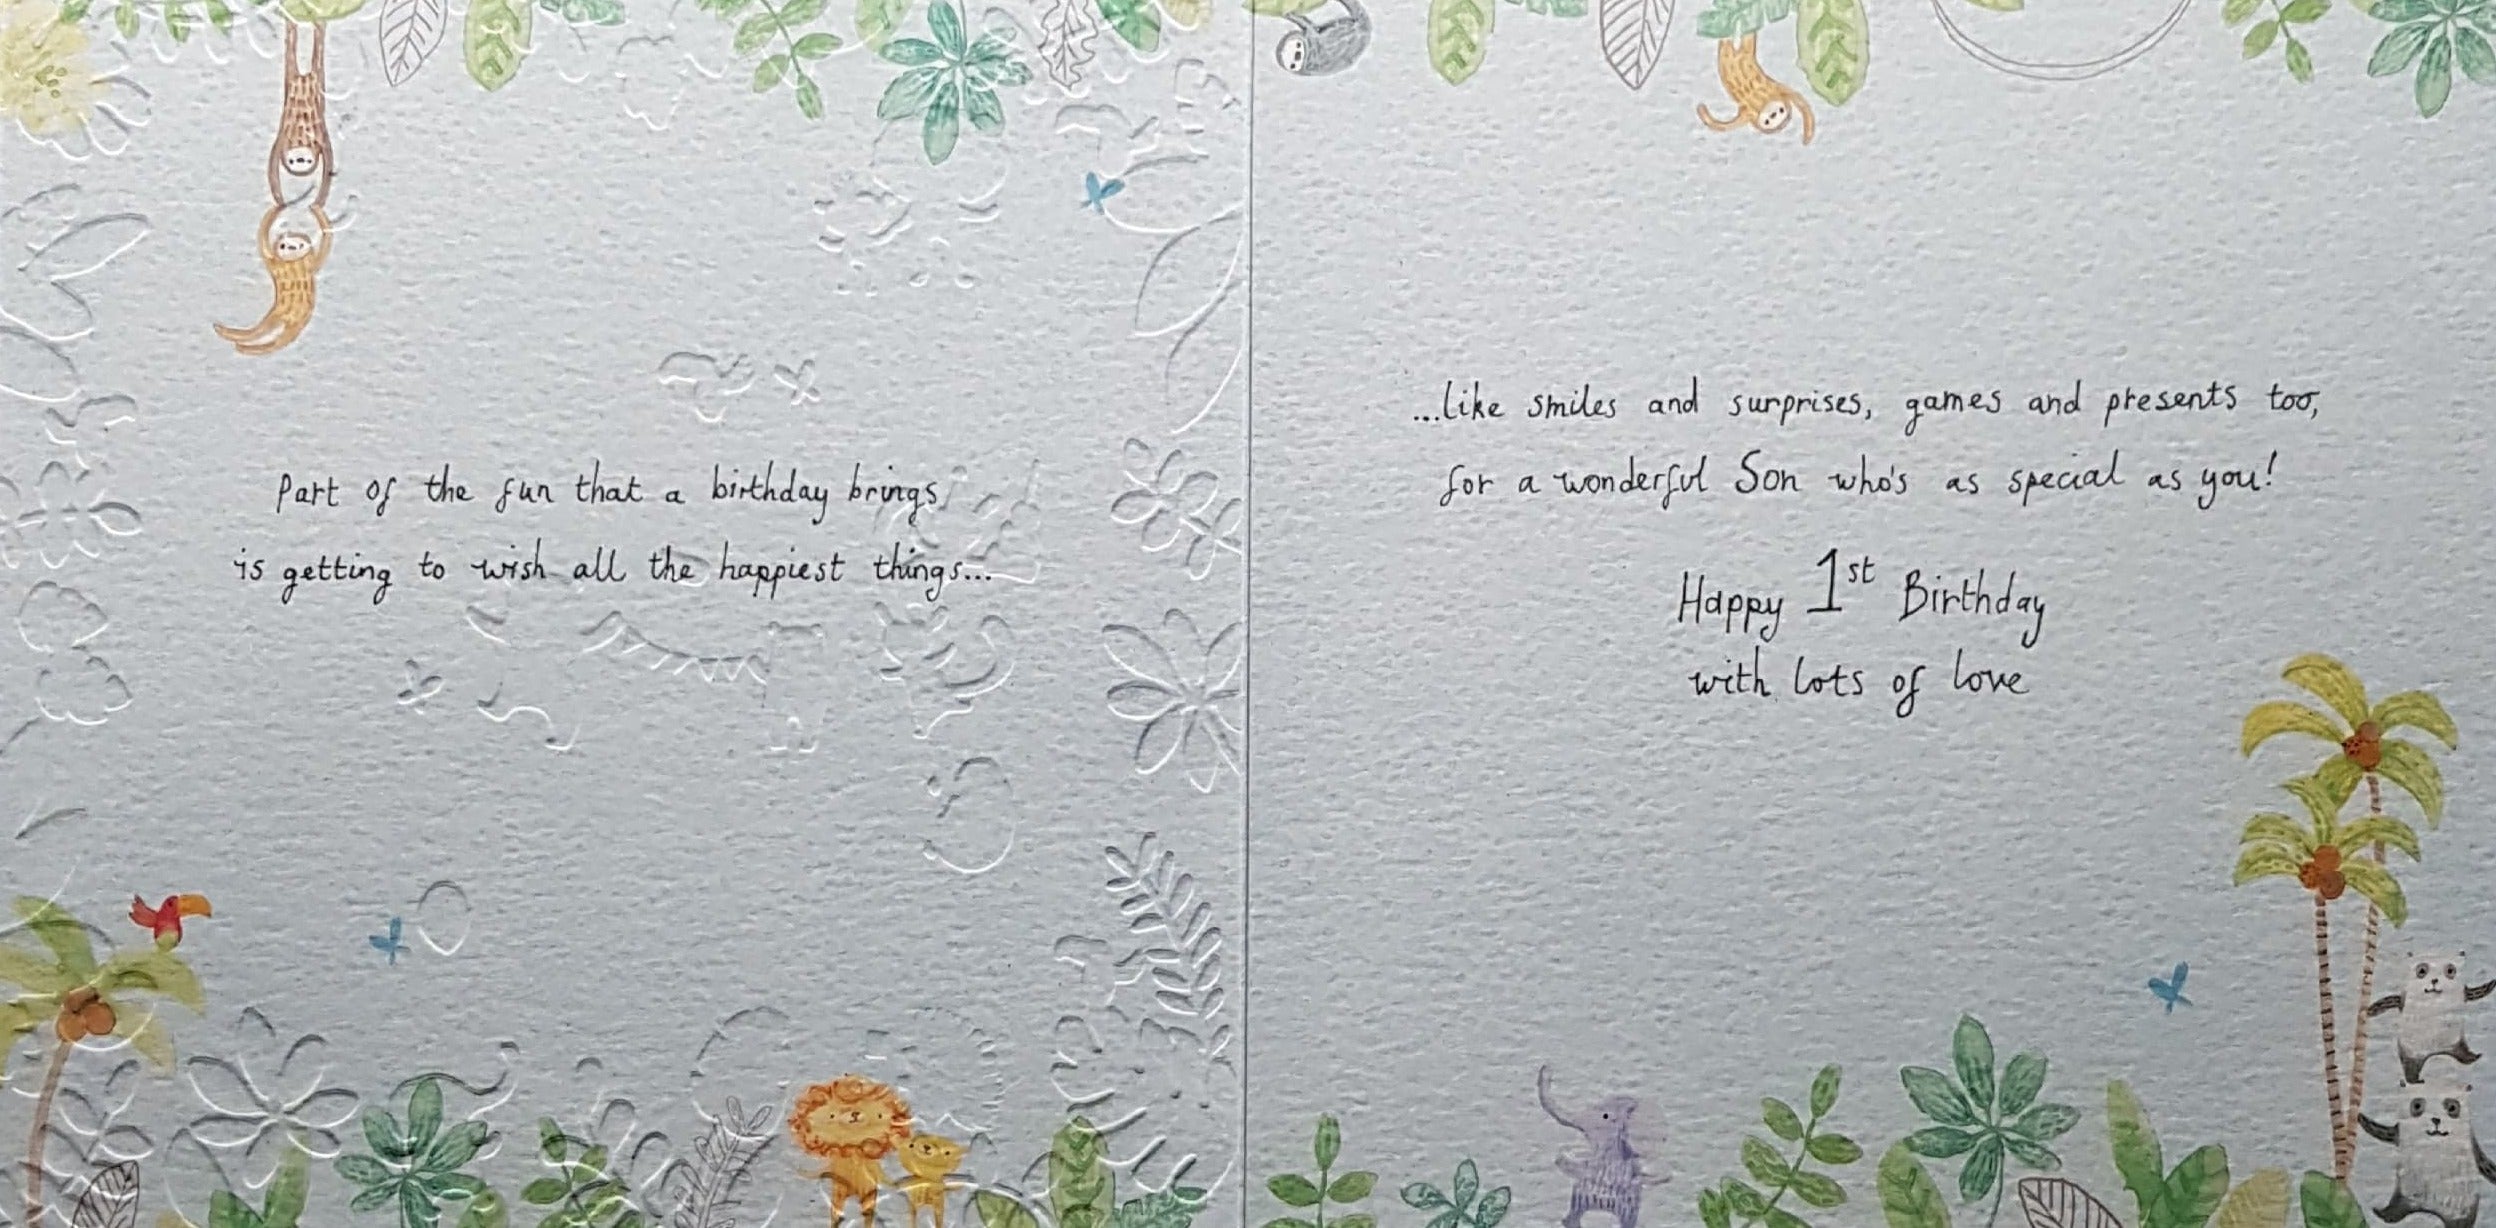 Part of the fun that a birthday brings
is getting to wish all the happiest things...
...like smiles and surprises, games and presents too,
for a wonderful Son who's as special as you!
Happy 1st Birthday
with lots of love